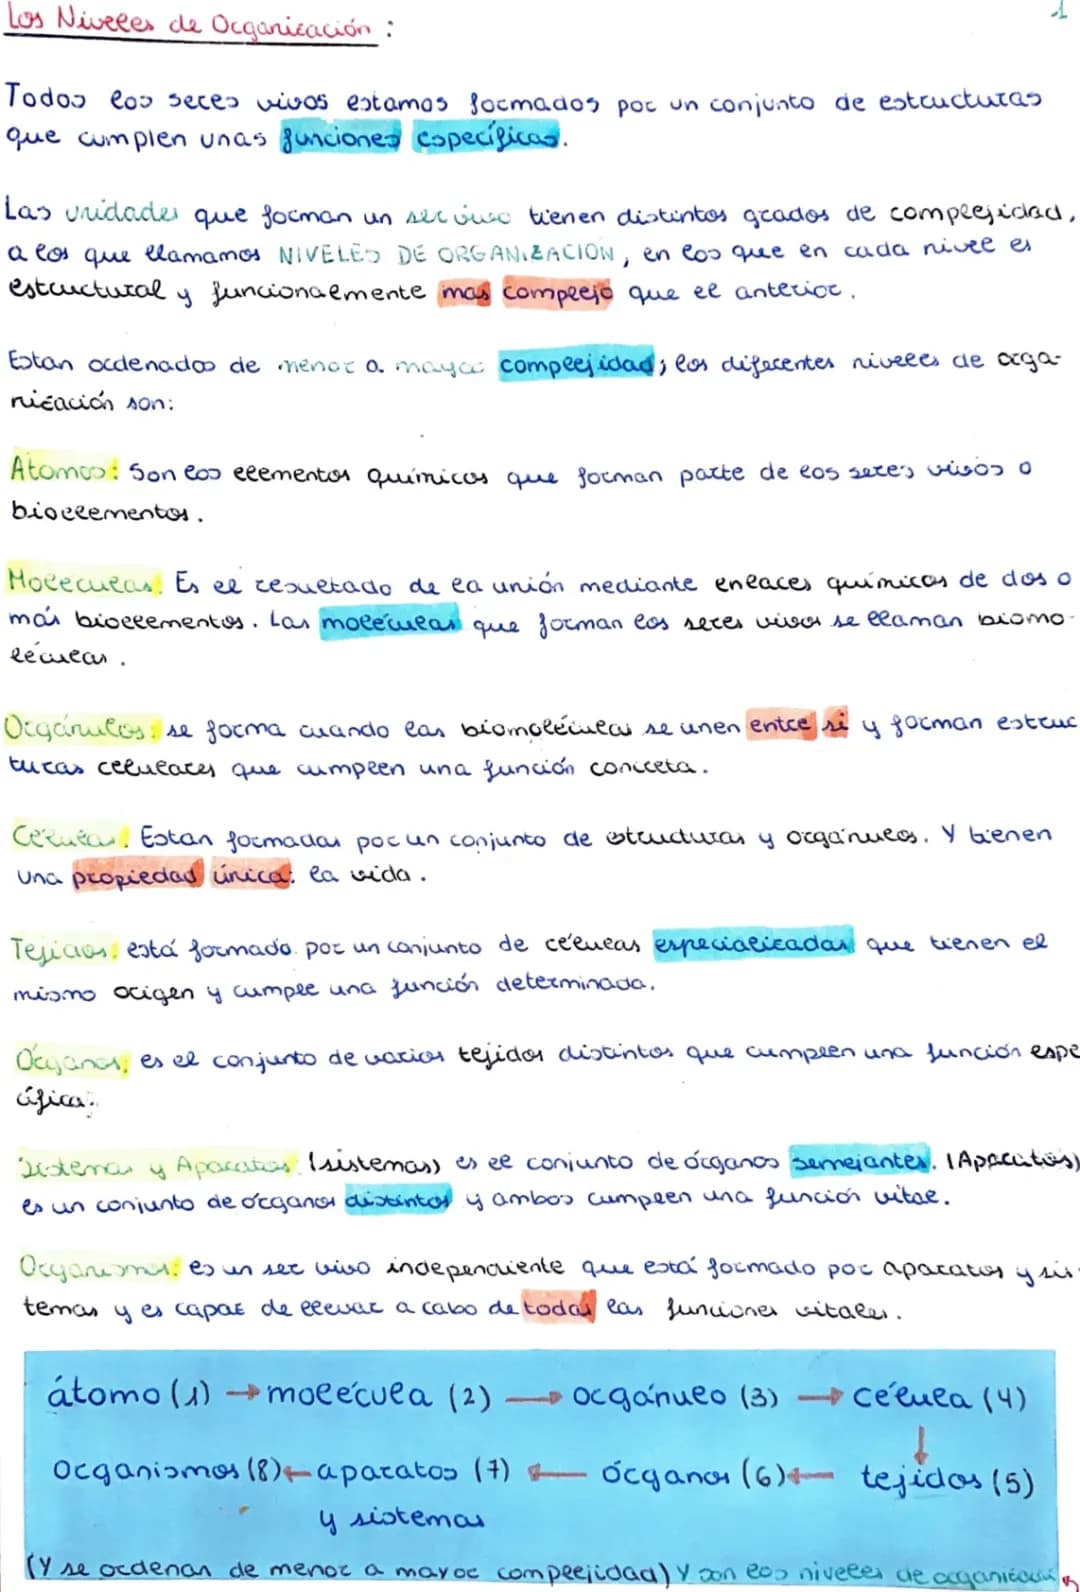 Los Niveles de Organización :
1
Todos los seres vivos estamos formados por un conjunto de estructuras
que cumplen unas funciones específicas.
Las unidades que forman un ser vivo tienen distintos grados de complejidad,
a los que llamamos NIVELES DE ORGANIZACIÓN, en los que en cada nivel es
estructural y funcionalmente mas complejo que el anterior.
Estan ordenados de menor a mayor complejidad; los diferentes niveles de orga-
nización son:
Atomos: Son los elementos químicos que forman parte de los seres vivos o
bioelementos.
Moleculas: Es el resultado de la unión mediante enlaces químicos de dos o
más bioelementos. Las moléculas que forman los seres vivos se llaman biomo-
léculas.
Orgánulos: se forma cuando las biomoléculas se unen entre si y forman estruc
turas celulares que cumplen una función concreta.
Células: Estan formadas por un conjunto de estructuras y orgánulos. Y tienen
una propiedad única: la vida.
Tejidos: está formado por un conjunto de células especializadas que tienen el
mismo origen y cumple una función determinada.
Órganos: es el conjunto de varios tejidos distintos que cumplen una función espe
cífica.
Sistemas y Aparatos: (sistemas) es el conjunto de órganos semejantes. (Aparatos)
es un conjunto de órganos distintos y ambos cumplen una función vital.
Organismos: es un ser vivo independiente que está formado por aparatos y sis-
temas y es capaz de llevar a cabo de todas las funciones vitales.
átomo (1) → molécula (2) → orgánulo (3) → célula (4)
↓
Organismos (8) ← aparatos (7) ← órganos (6) ← tejidos (5)
y sistemas
(Y se ordenan de menor a mayor complejidad) Y son los niveles de organización